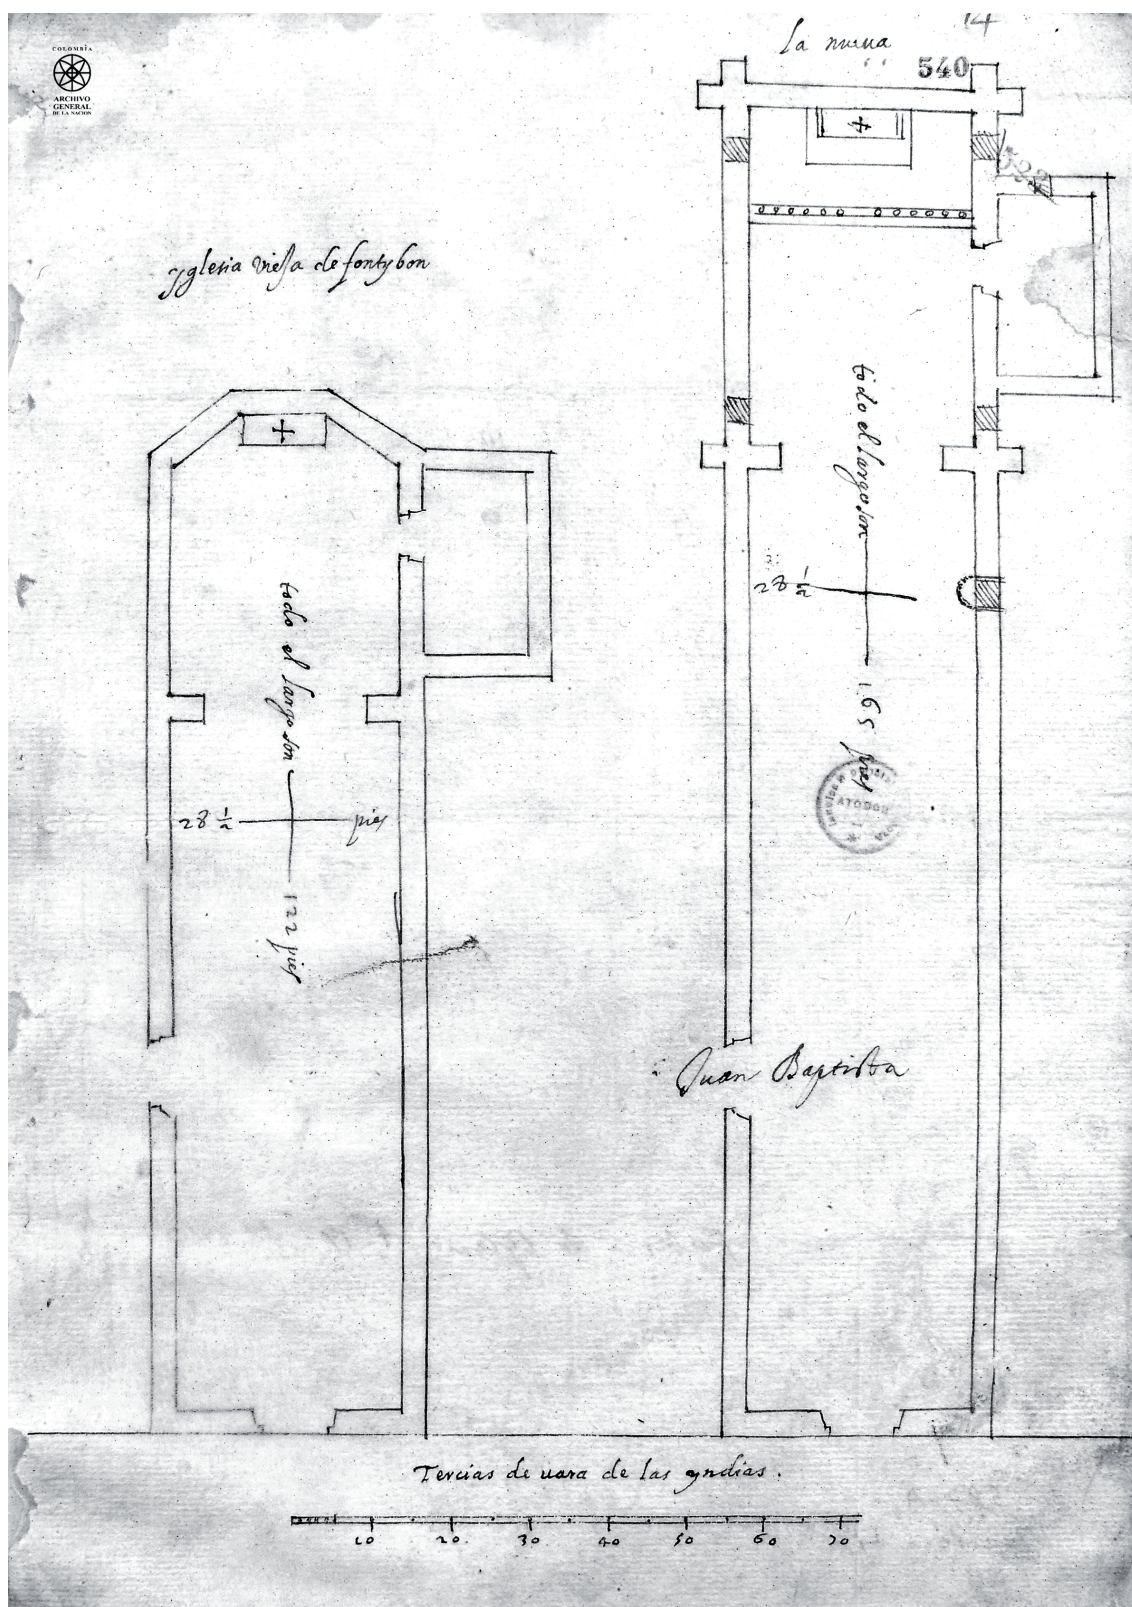 COLOMBIA
ARCHIVO
GENERAL
DE LA NACION
14
la nueva
540
522
yglesia viesa de fontybon
todo el largo son 165 pies
28 1/2
todo el largo son 122 pies
28 1/2 pies
BOGOTA
Juan Baptista
Tercias de uara de las yndias.
10 20 30 40 50 60 70